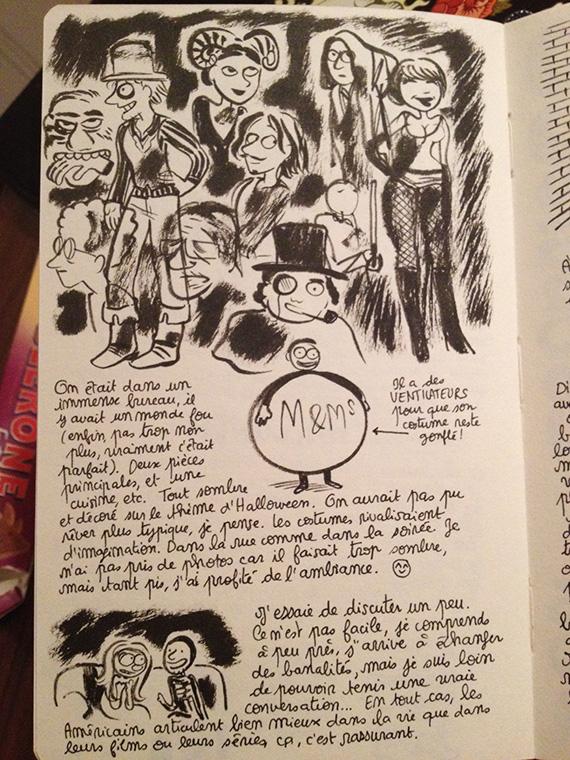 On était dans un
immense bureau, il
y avait un monde fou
(enfin, pas trop non
plus, vraiment c'était
parfait). Deux pièces
principales, et une
cuisine, etc. Tout sombre
et décoré sur le thème d'Halloween. On aurait pas pu
rêver plus typique, je pense. Les costumes rivalisaient
d'imagination. Dans la rue comme dans la soirée je
n'ai pas pris de photos car il faisait trop sombre,
mais tant pis, j'ai profité de l'ambiance.
M&M's
Il a des
VENTILATEURS
pour que son
costume reste
gonflé!
J'essaie de discuter un peu.
Ce n'est pas facile, je comprends
à peu près, j'arrive à échanger
des banalités, mais je suis loin
de pouvoir tenir une vraie
conversation... En tout cas, les
Américains articulent bien mieux dans la vie que dans
leurs films ou leurs séries ça, c'est rassurant.